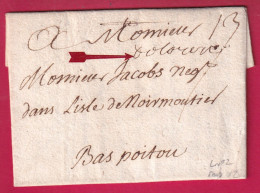 A Monsieur 13
Monsieur Jacobs Negt
dans Lisle de Noirmoutier
Bas poitou